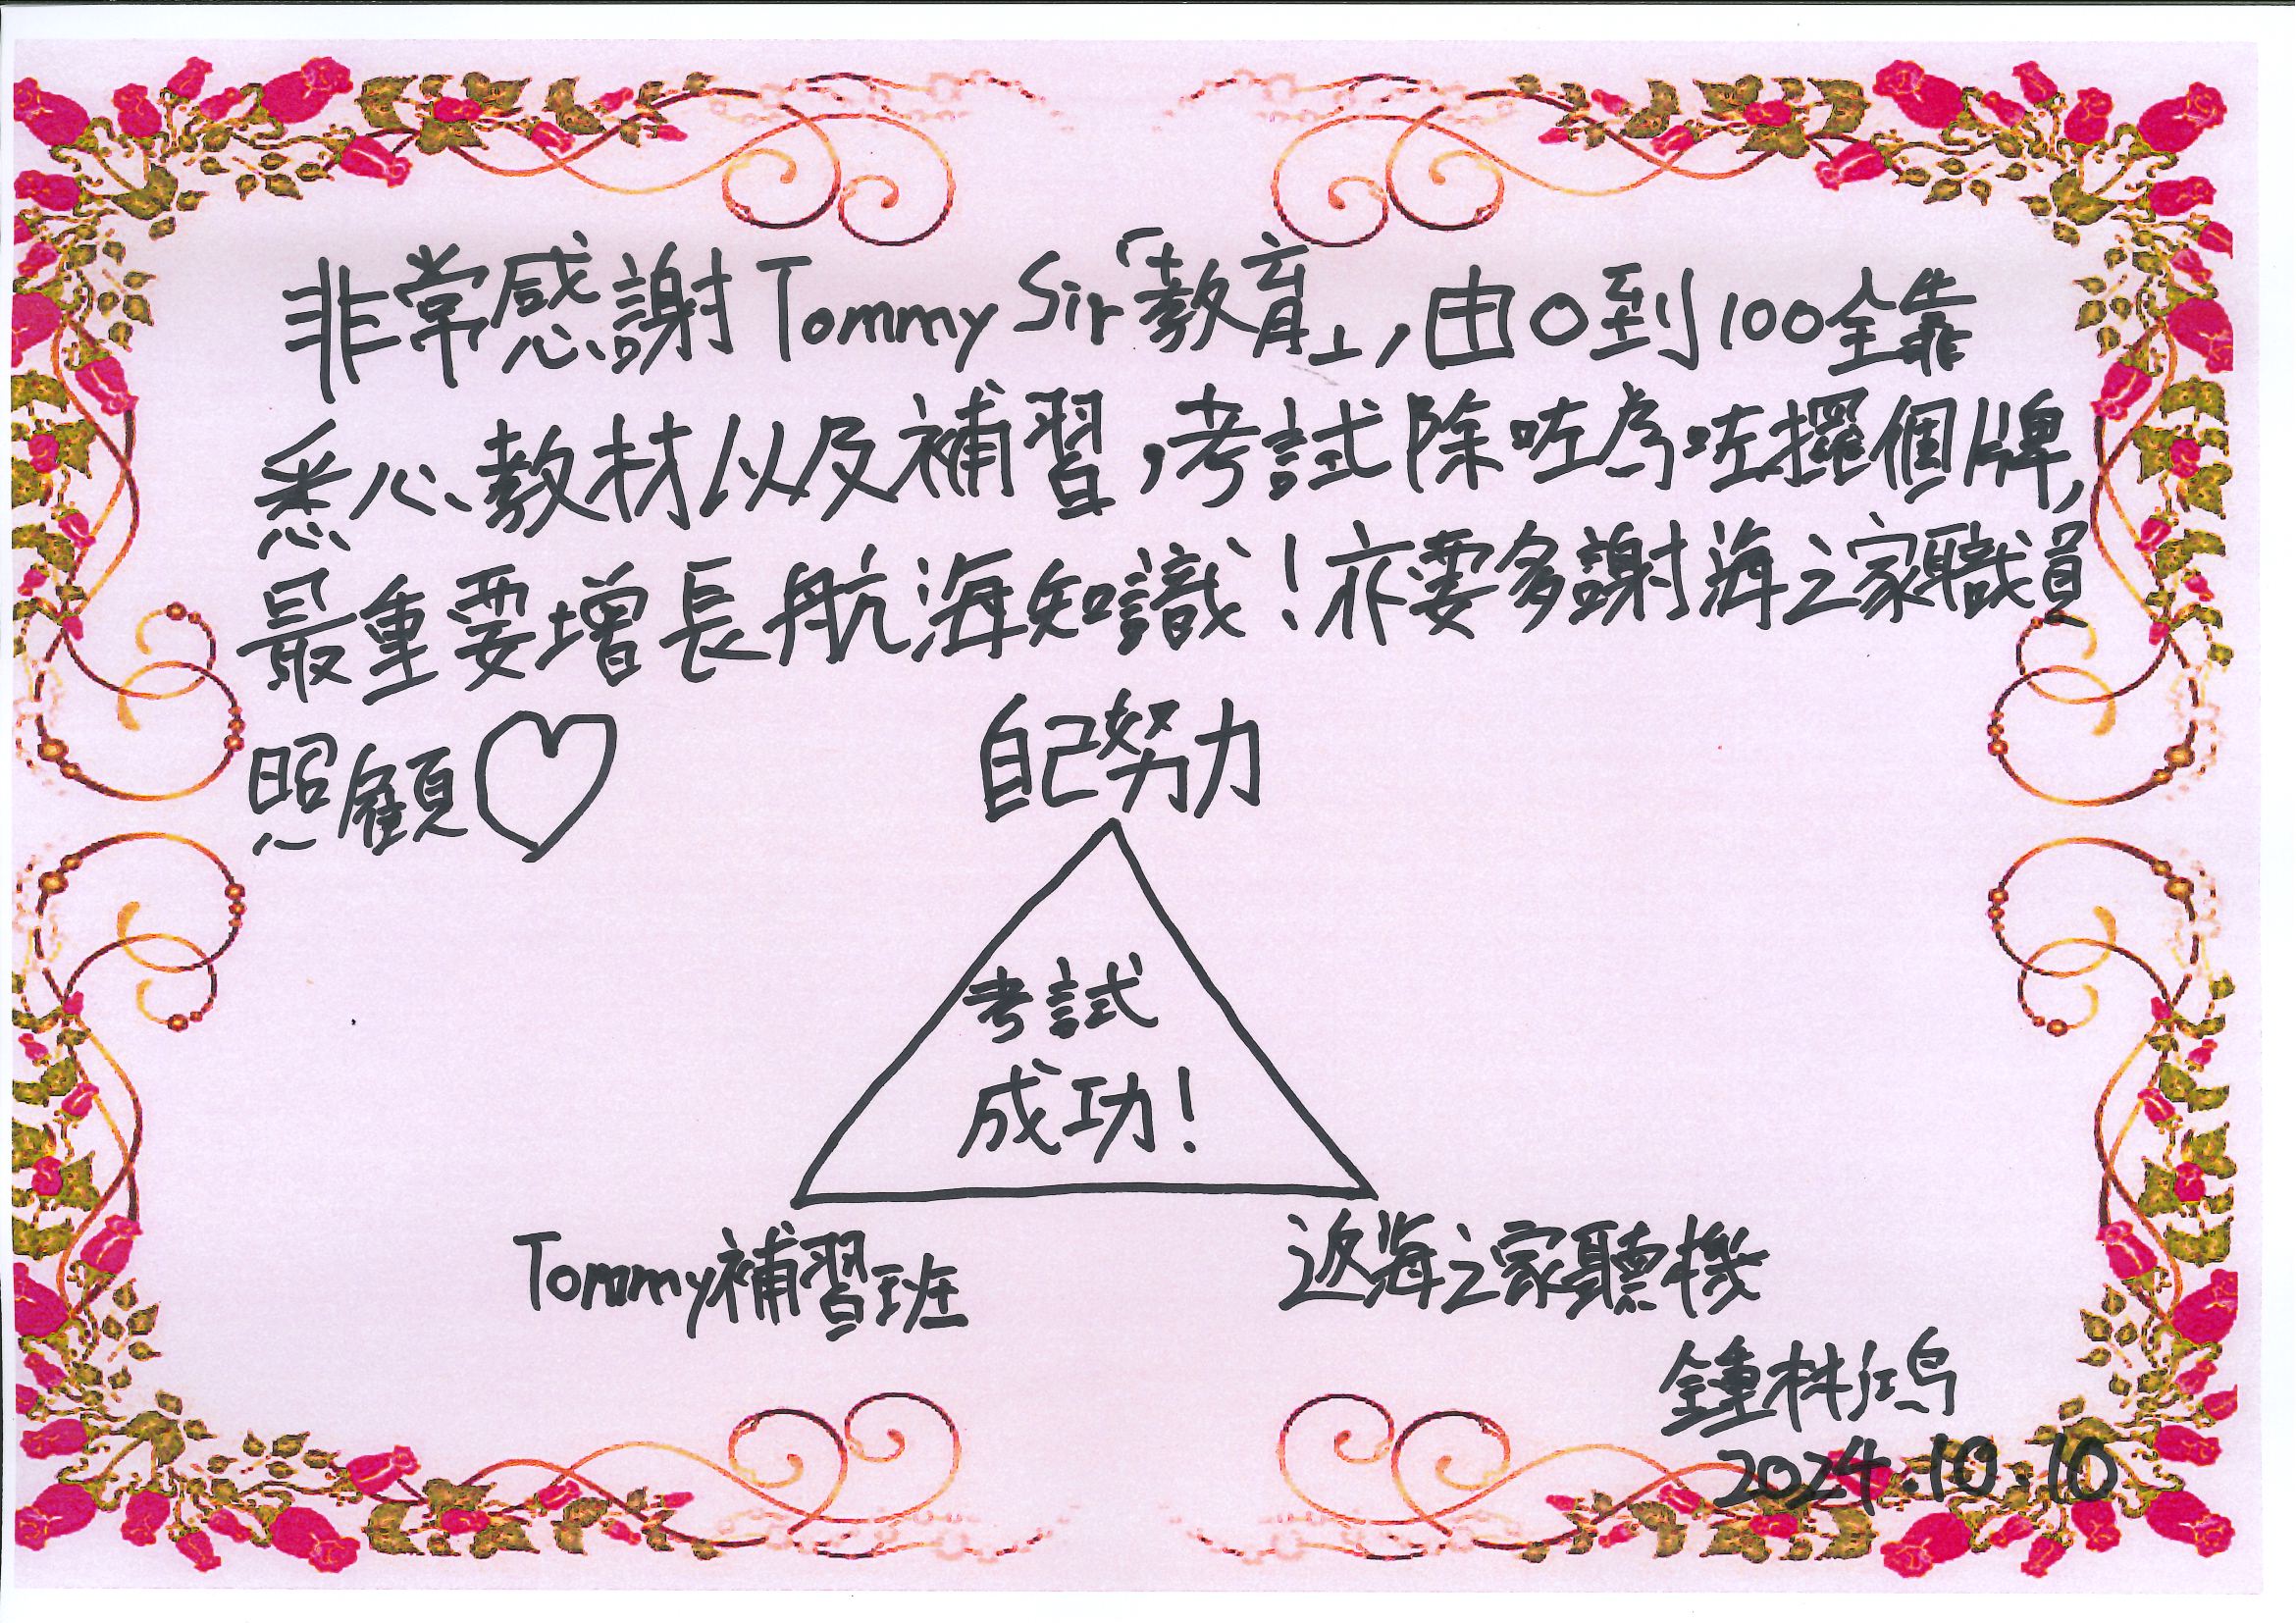 非常感謝Tommy Sir「教育」,由0到100全靠
悉心教材以及補習,考試除咗為咗攞個牌,
最重要增長航海知識!亦要多謝海之家職員
照顧♡
自己努力
考試
成功!
Tommy補習班
返海之家聽機
鍾林鴻
2024.10.10